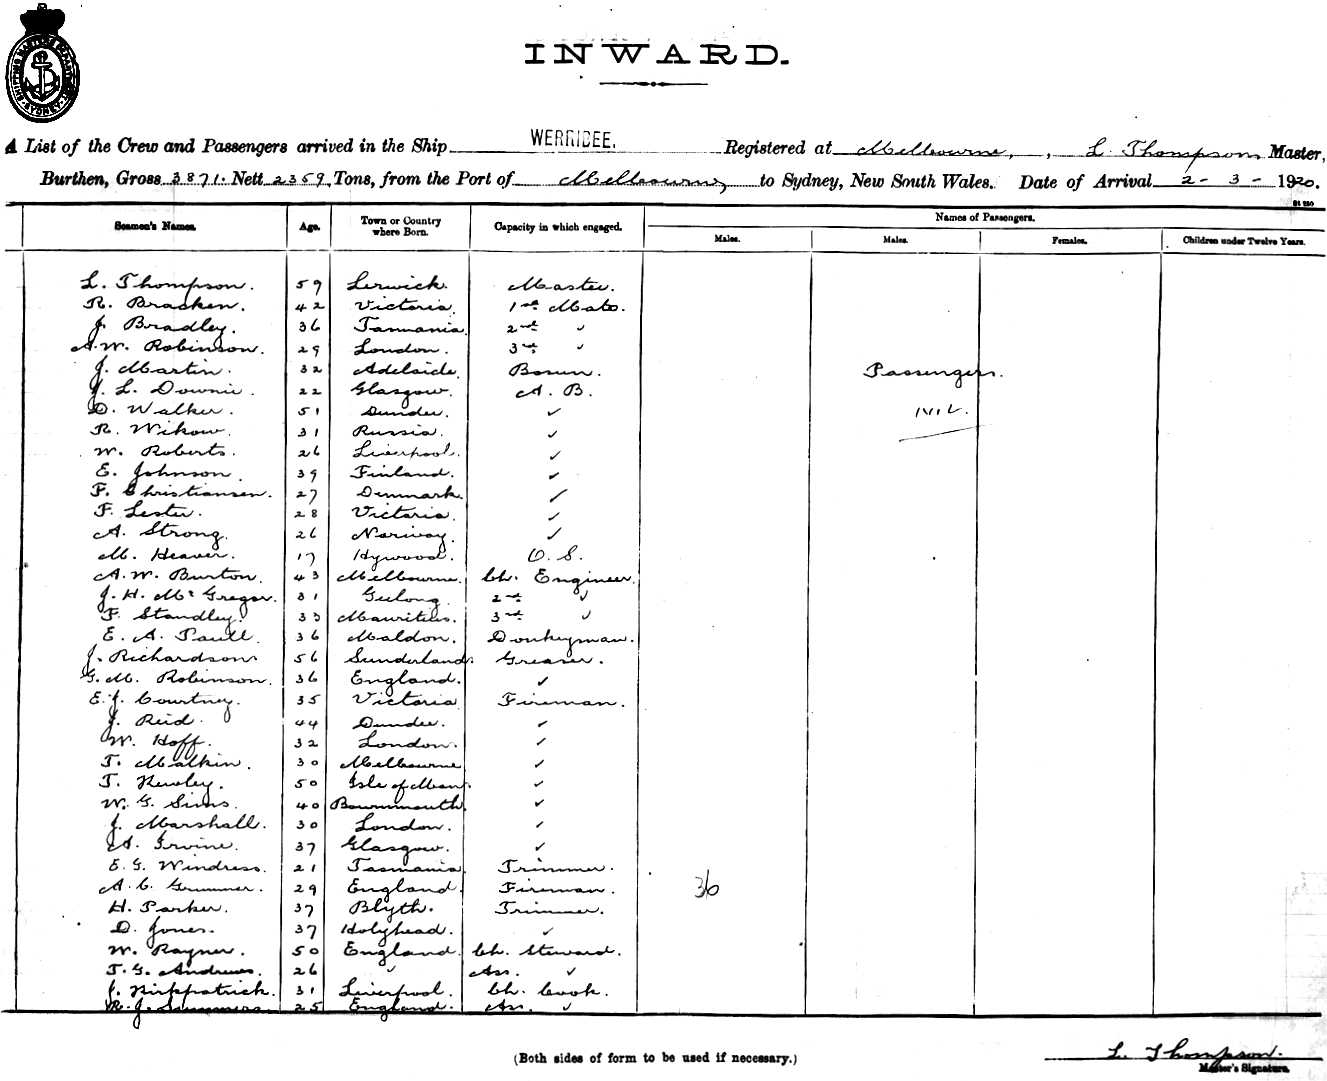 INWARD.
A List of the Crew and Passengers arrived in the Ship WERRIBEE. Registered at Melbourne, , L. Thompson Master,
Burthen, Gross 3871. Nett 2359, Tons, from the Port of Melbourne to Sydney, New South Wales. Date of Arrival 2 - 3 - 1920.
Seamen's Names. Age. Town or Country where Born. Capacity in which engaged. Names of Passengers.
Males. Males. Females. Children under Twelve Years.
L. Thompson. 59 Lerwick Master.
R. Bracken. 42 Victoria. 1st Mate.
J. Bradley. 36 Tasmania 2nd "
A. W. Robinson. 29 London. 3rd "
J. Martin. 32 Adelaide. Bosun. Passengers.
J. L. Downie. 22 Glasgow. A. B.
D. Walker. 51 Dundee. ✓ NIL.
R. Wikow. 31 Russia. ✓
W. Roberts. 26 Liverpool. ✓
E. Johnson. 39 Finland. ✓
F. Christiansen. 27 Denmark. ✓
F. Lester. 28 Victoria. ✓
A. Strong. 26 Norway. ✓
M. Heaver. 17 Hywood. O. S.
A. W. Burton. 43 Melbourne. Ch. Engineer.
J. H. Mc Gregor. 31 Geelong. 2nd "
F. Standley. 33 Mauritius. 3rd "
E. A. Paull. 36 Maldon. Donkeyman.
J. Richardson 56 Sunderland. Greaser.
G. M. Robinson. 36 England. ✓
E. J. Courtney. 35 Victoria Fireman.
J. Reid. 44 Dundee. ✓
W. Hoff. 32 London. ✓
T. Malkin. 30 Melbourne ✓
T. Kewley. 50 Isle of Man. ✓
W. G. Sims. 40 Bournmouth. ✓
J. Marshall. 30 London. ✓
A. Irvine. 37 Glasgow. ✓
E. G. Windress. 21 Tasmania Trimmer.
A. C. Grummer. 29 England. Fireman. 36
H. Parker. 37 Blyth. Trimmer.
D. Jones. 37 Holyhead. ✓
W. Rayner. 50 England. Ch. Steward.
T. G. Andrews. 26 " Ass. "
J. Kirkpatrick. 31 Liverpool. Ch. Cook.
R. J. Summers. 25 England. Ass. "
(Both sides of form to be used if necessary.)
L. Thompson.
Master's Signature.